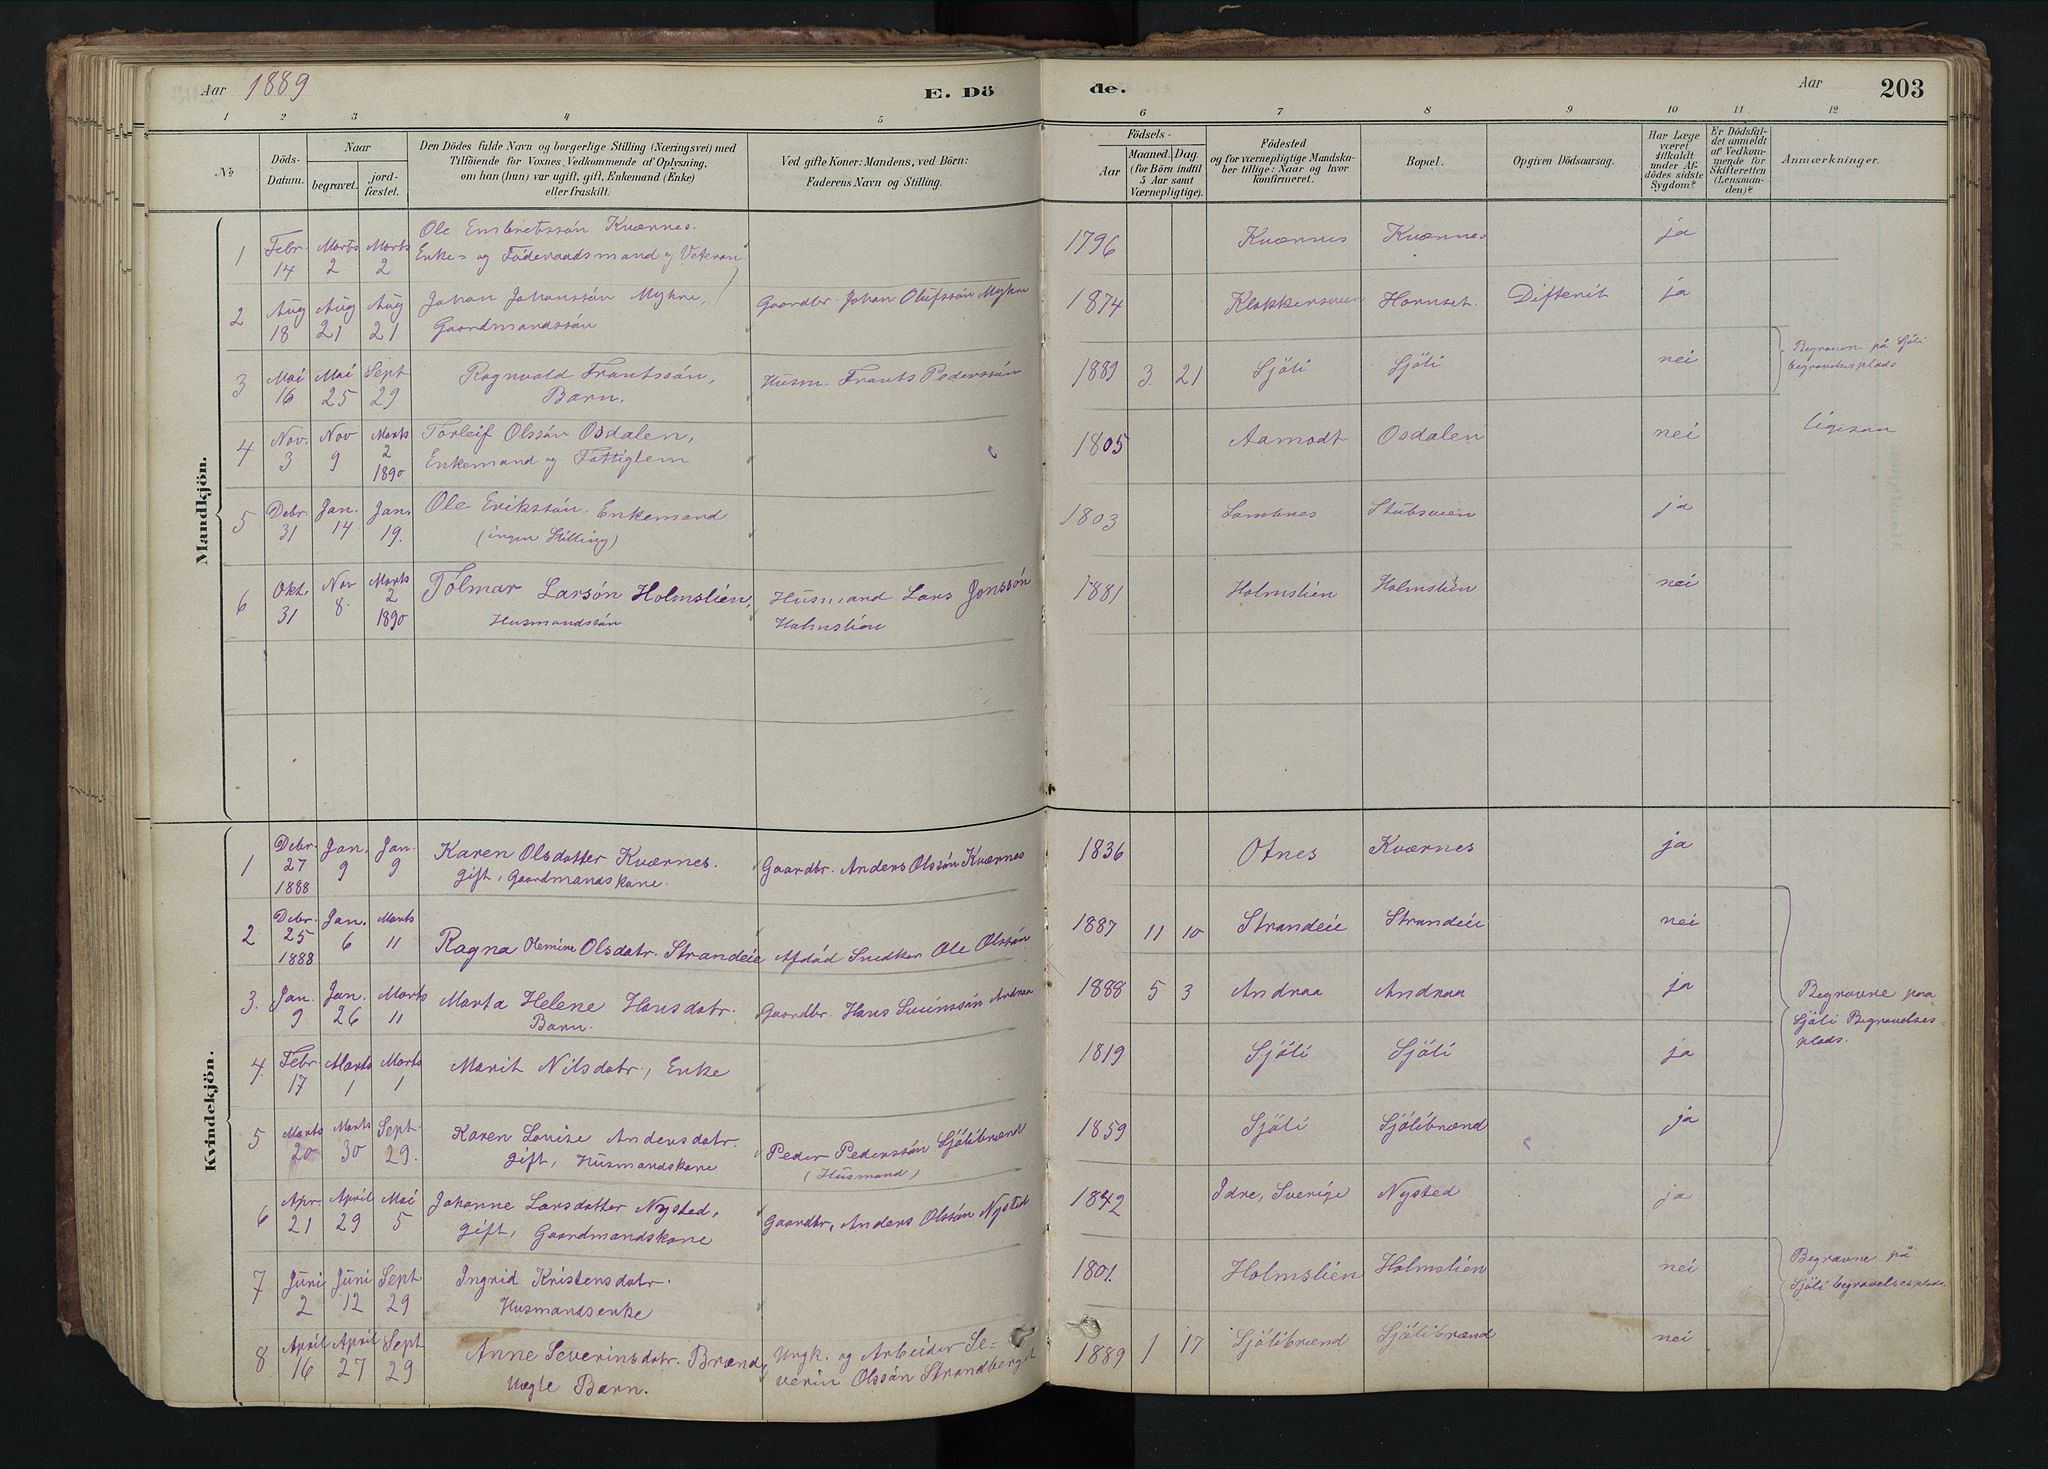 Aar 1889
E. Dö
de.
Aar
203
1 2 3 4 5 6 7 8 9 10 11 12
No
Döds-
Datum.
Naar
begravet.
jord-
fæstet.
Den Dödes fulde Navn og borgerlige Stilling (Næringsvei) med
Tilföiende for Voxnes Vedkommende af Oplysning,
om han (hun) var ugift, gift, Enkemand (Enke)
eller fraskilt.
Ved gifte Koner: Mandens, ved Börn:
Faderens Navn og Stilling.
Födsels-
Aar
Maaned. Dag.
(for Börn indtil
5 Aar samt
Værnepligtige).
Födested
og for værnepligtige Mandska-
ber tillige: Naar og hvor
konfirmeret.
Bopæl.
Opgiven Dödsaarsag.
Har Læge
været
tilkaldt
under Af-
dödes sidste
Sygdom?
Er Dödsfal-
det anmeldt
af Vedkom-
mende for
Skifteretten
(Lensman-
den)?
Anmærkninger.
Mandkjön.
1 Febr. 14 Marts 2 Marts 2 Ole Embretssön Kværnes.
Enke- og Föderaadsmand og Veteran. 1796 Kværnes Kværnes ja
2 Aug 18 Aug 21 Aug 21 Johan Johanssön Myhre,
Gaardmandssön Gaardbr. Johan Olufssön Myhre 1874 Klokkersveen Hornset. Difterit ja
3 Mai 16 Mai 25 Sept 29 Ragnvald Frantssön,
Barn. Husm. Frants Pederssön 1889 3 21 Sjöli Sjöli nei Begraven på Sjöli
begravelsesplads
4 Nov. 3 Nov 9 Marts 2 1890 Torleif Olssön Osdalen,
Enkemand og Fattiglem 1805 Aamodt Osdalen nei ligesaa
5 Debr. 31 Jan. 14 Jan. 19. Ole Erikssön, Enkemand
(ingen Stilling) 1803 Lombnes Stubsveen ja
6 Okt. 31 Nov 8. Marts 2 1890 Tolmar Larsön Holmslien,
Husmandssön Husmand Lars Jonssön
Holmslien 1881 Holmslien Holmslien nei
Kvindekjön.
1 Debr. 27 1888 Jan. 9 Jan. 9 Karen Olsdatter Kværnes.
gift, Gaardmandskone. Gaardbr. Anders Olssön Kværnes 1836 Otnes Kværnes ja
2 Debr. 25 1888 Jan. 6 Marts 11 Ragna Olemine Olsdatr. Strandeie Afdöd Snedker Ole Olssön 1887 11 10 Strandeie Strandeie nei
3. Jan. 9 Jan. 26 Marts 11 Marta Helene Hansdatr.
Barn. Gaardbr. Hans Sveinssön Andraa 1888 5 3 Andraa Andraa ja Begravne paa
Sjöli Begravelses-
plads.
4. Febr 17 Marts 1 Marts 1 Marit Nilsdatr., Enke 1819 Sjöli Sjöli ja
5 Marts 20 Marts 30 Sept. 29. Karen Lovise Andersdatr.
gift, Husmandskone Peder Pederssön Sjölibrænd
(Husmand) 1859 Sjöli Sjölibrænd ja
6 Apr. 21 April 29 Mai 5 Johanne Larsdatter Nysted,
gift, Gaardmandskone Gaardbr. Anders Olssön Nysted 1842 Idre, Sverige Nysted ja
7 Juni 2 Juni 12 Sept 29 Ingrid Kristensdatr.
Husmandsenke 1801. Holmslien Holmslien nei Begravne på
Sjöli begravelsesplads
8 April 16 April 27 Sept 29 Anne Severinsdatr. Brænd,
Uægte Barn. Ungk. og Arbeider Se-
verin Olssön Strandberget 1889 1 17 Sjölibrænd Sjölibrænd nei